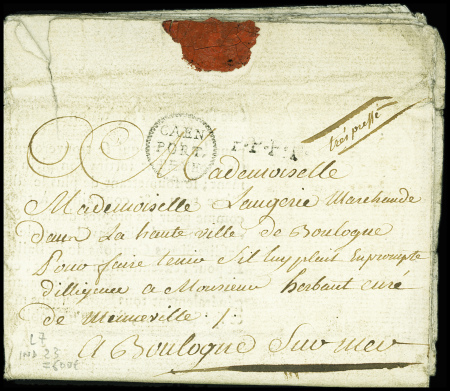 très pressé
CAEN
PORT.
P.P.P.P.
Mademoiselle
Mademoiselle Laugerie Marchande
dans La haute ville de Boulogne
Pour faire tenir Sil luy plait En prompte
dilligence a Monsieur herbaut curé
de Menneville ./.
A Boulogne Sur mer
L7
IND 23
=600F